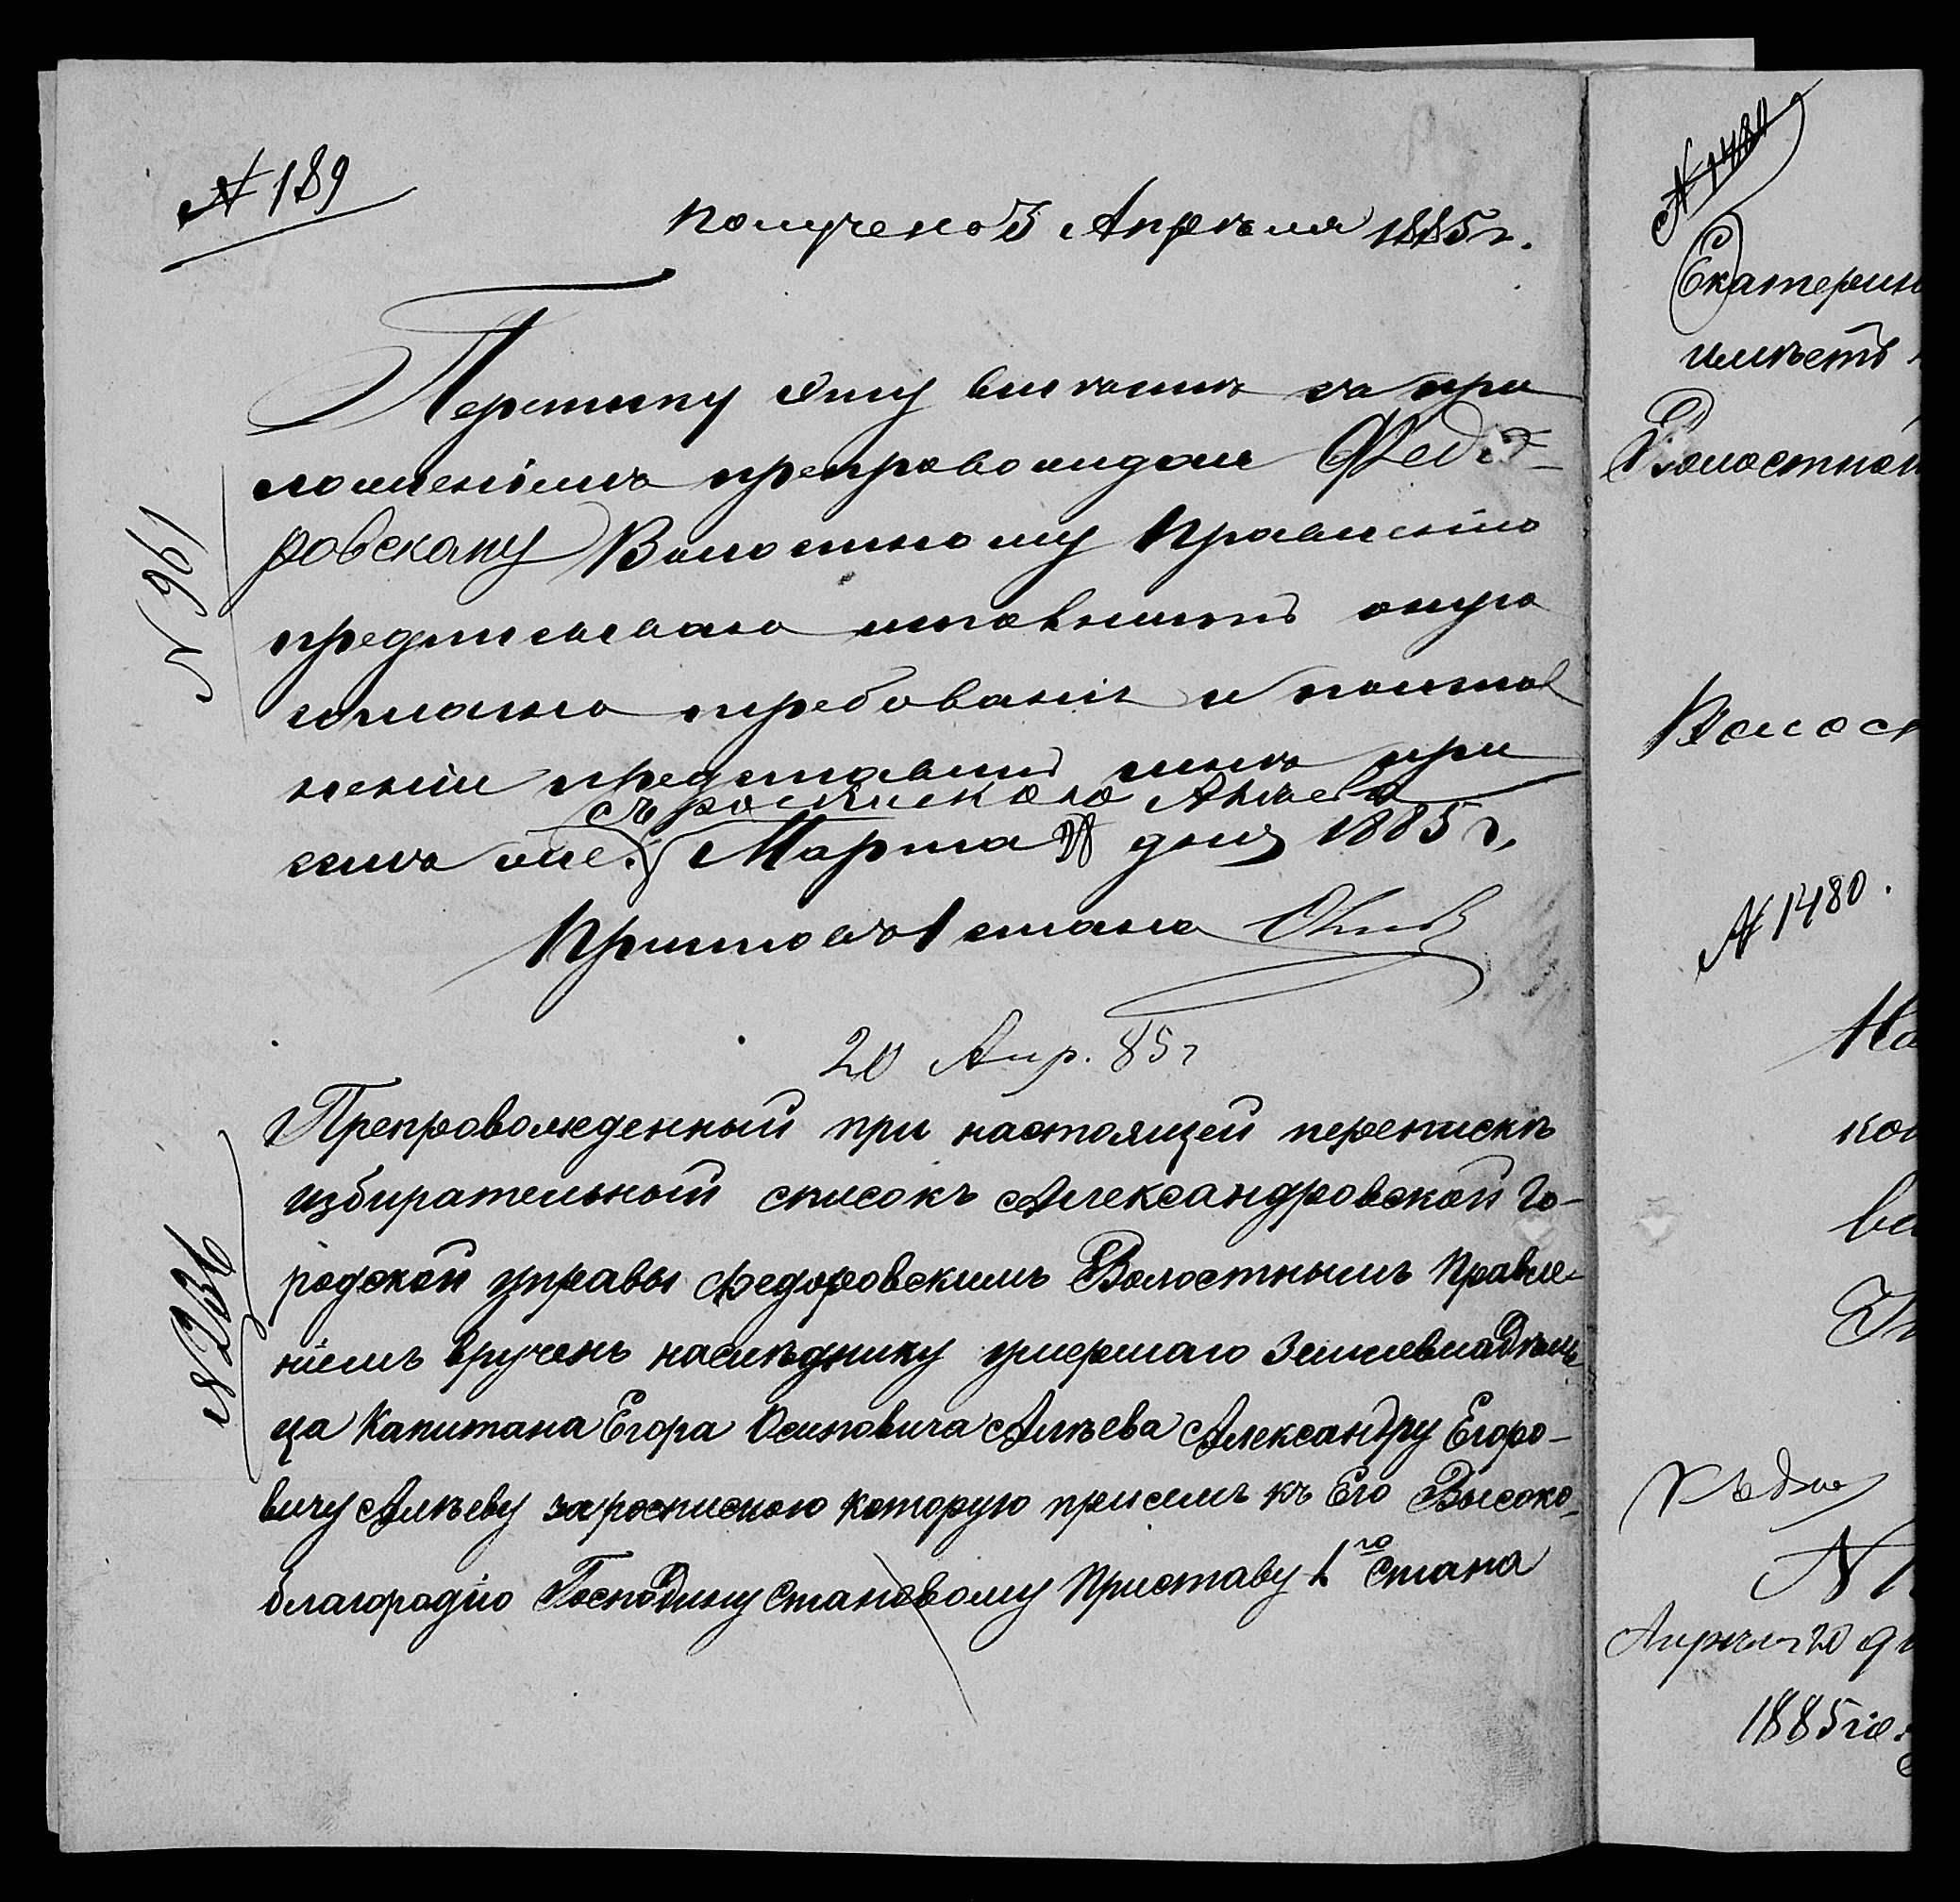 № 189
получено 3 Апрѣля 1885 г.
Переписку эту вмѣстѣ съ при
ложеніемъ препровождаю Федо-
ровскому Волостному Правленію
предписываю исполнить оную
согласно требованія и по испол
неніи представить мнѣ при
съ роспискою Алѣева
семъ же. Марта 28 дня 1885 г.
Приставъ 1 стана
№ 961
20 Апр. 85 г
Препровожденный при настоящей перепискѣ
избирательный списокъ Александровской Го-
родской управы Федоровскимъ Волостнымъ Правле-
ніемъ врученъ наслѣднику умершаго Землевладѣль
ца Капитана Егора Осиповича Алѣева Александру Егоро-
вичу Алѣеву за роспискою которую при семъ къ Его Высоко-
благородію Господину Становому Приставу 1го Стана
№ 236
№ 1480
Екатерин
имѣетъ
Волостной
Волос
№ 1480.
На
ков
ва
№ 1
Апрѣля 20 дн
1885 го